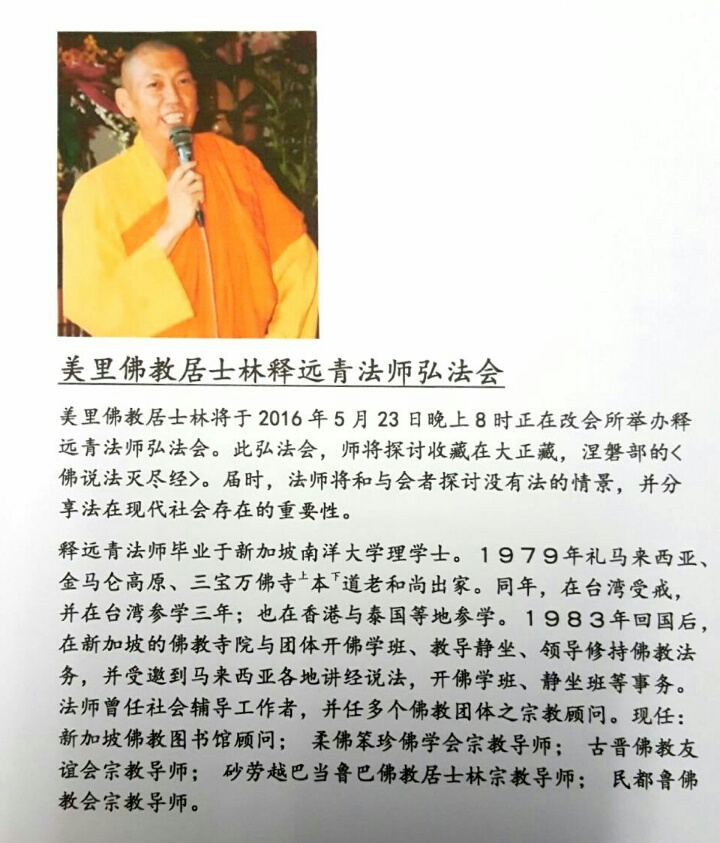 美里佛教居士林释远青法师弘法会
美里佛教居士林将于 2016 年 5 月 23 日晚上 8 时正在改会所举办释
远青法师弘法会。此弘法会，师将探讨收藏在大正藏，涅磐部的<
佛说法灭尽经>。届时，法师将和与会者探讨没有法的情景，并分
享法在现代社会存在的重要性。
释远青法师毕业于新加坡南洋大学理学士。１９７９年礼马来西亚、
金马仑高原、三宝万佛寺上本下道老和尚出家。同年，在台湾受戒，
并在台湾参学三年；也在香港与泰国等地参学。１９８３年回国后，
在新加坡的佛教寺院与团体开佛学班、教导静坐、领导修持佛教法
务，并受邀到马来西亚各地讲经说法，开佛学班、静坐班等事务。
法师曾任社会辅导工作者，并任多个佛教团体之宗教顾问。现任：
新加坡佛教图书馆顾问； 柔佛笨珍佛学会宗教导师； 古晋佛教友
谊会宗教导师； 砂劳越巴当鲁巴佛教居士林宗教导师； 民都鲁佛
教会宗教导师。